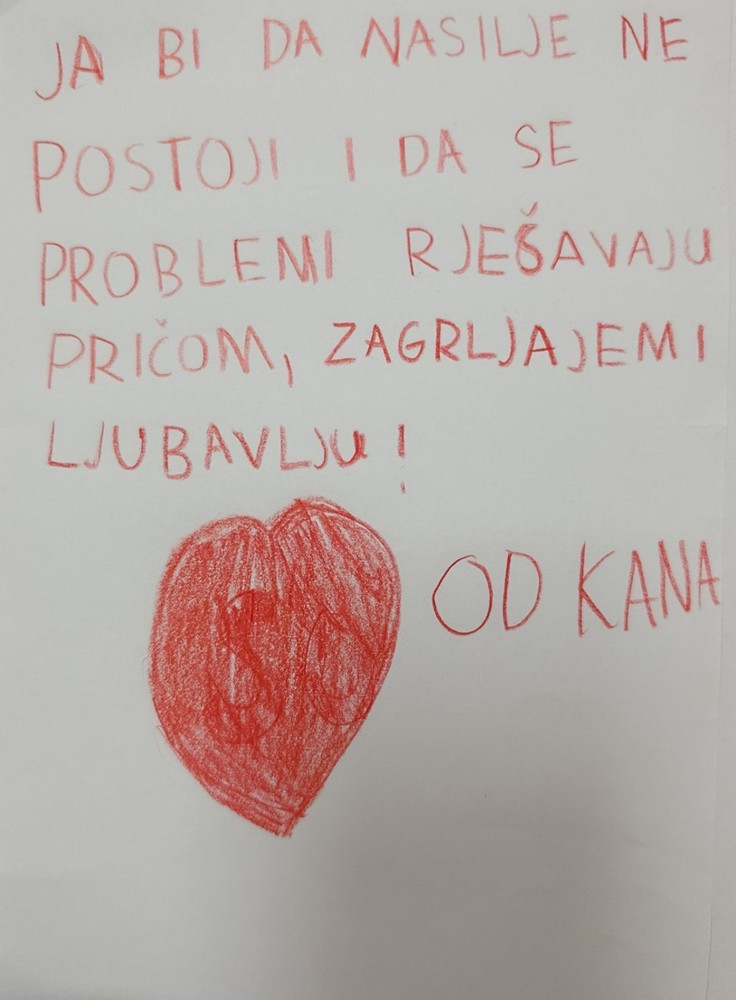 JA BI DA NASILJE NE
POSTOJI I DA SE
PROBLEMI RJEŠAVAJU
PRIČOM, ZAGRLJAJEM I
LJUBAVLJU!
OD KANA